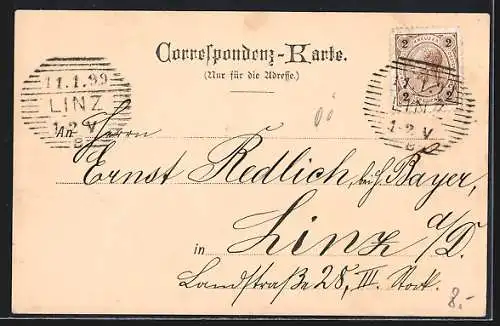 Correspondenz-Karte.
(Nur für die Adresse.)
2 2
11.1.99
LINZ
1-2 V
8
LINZ
1-2 V
An Herrn
Ernst Redlich, bei H. Bayer,
in Linz a/D.
Landstraße 28, III. Stock.
8.-